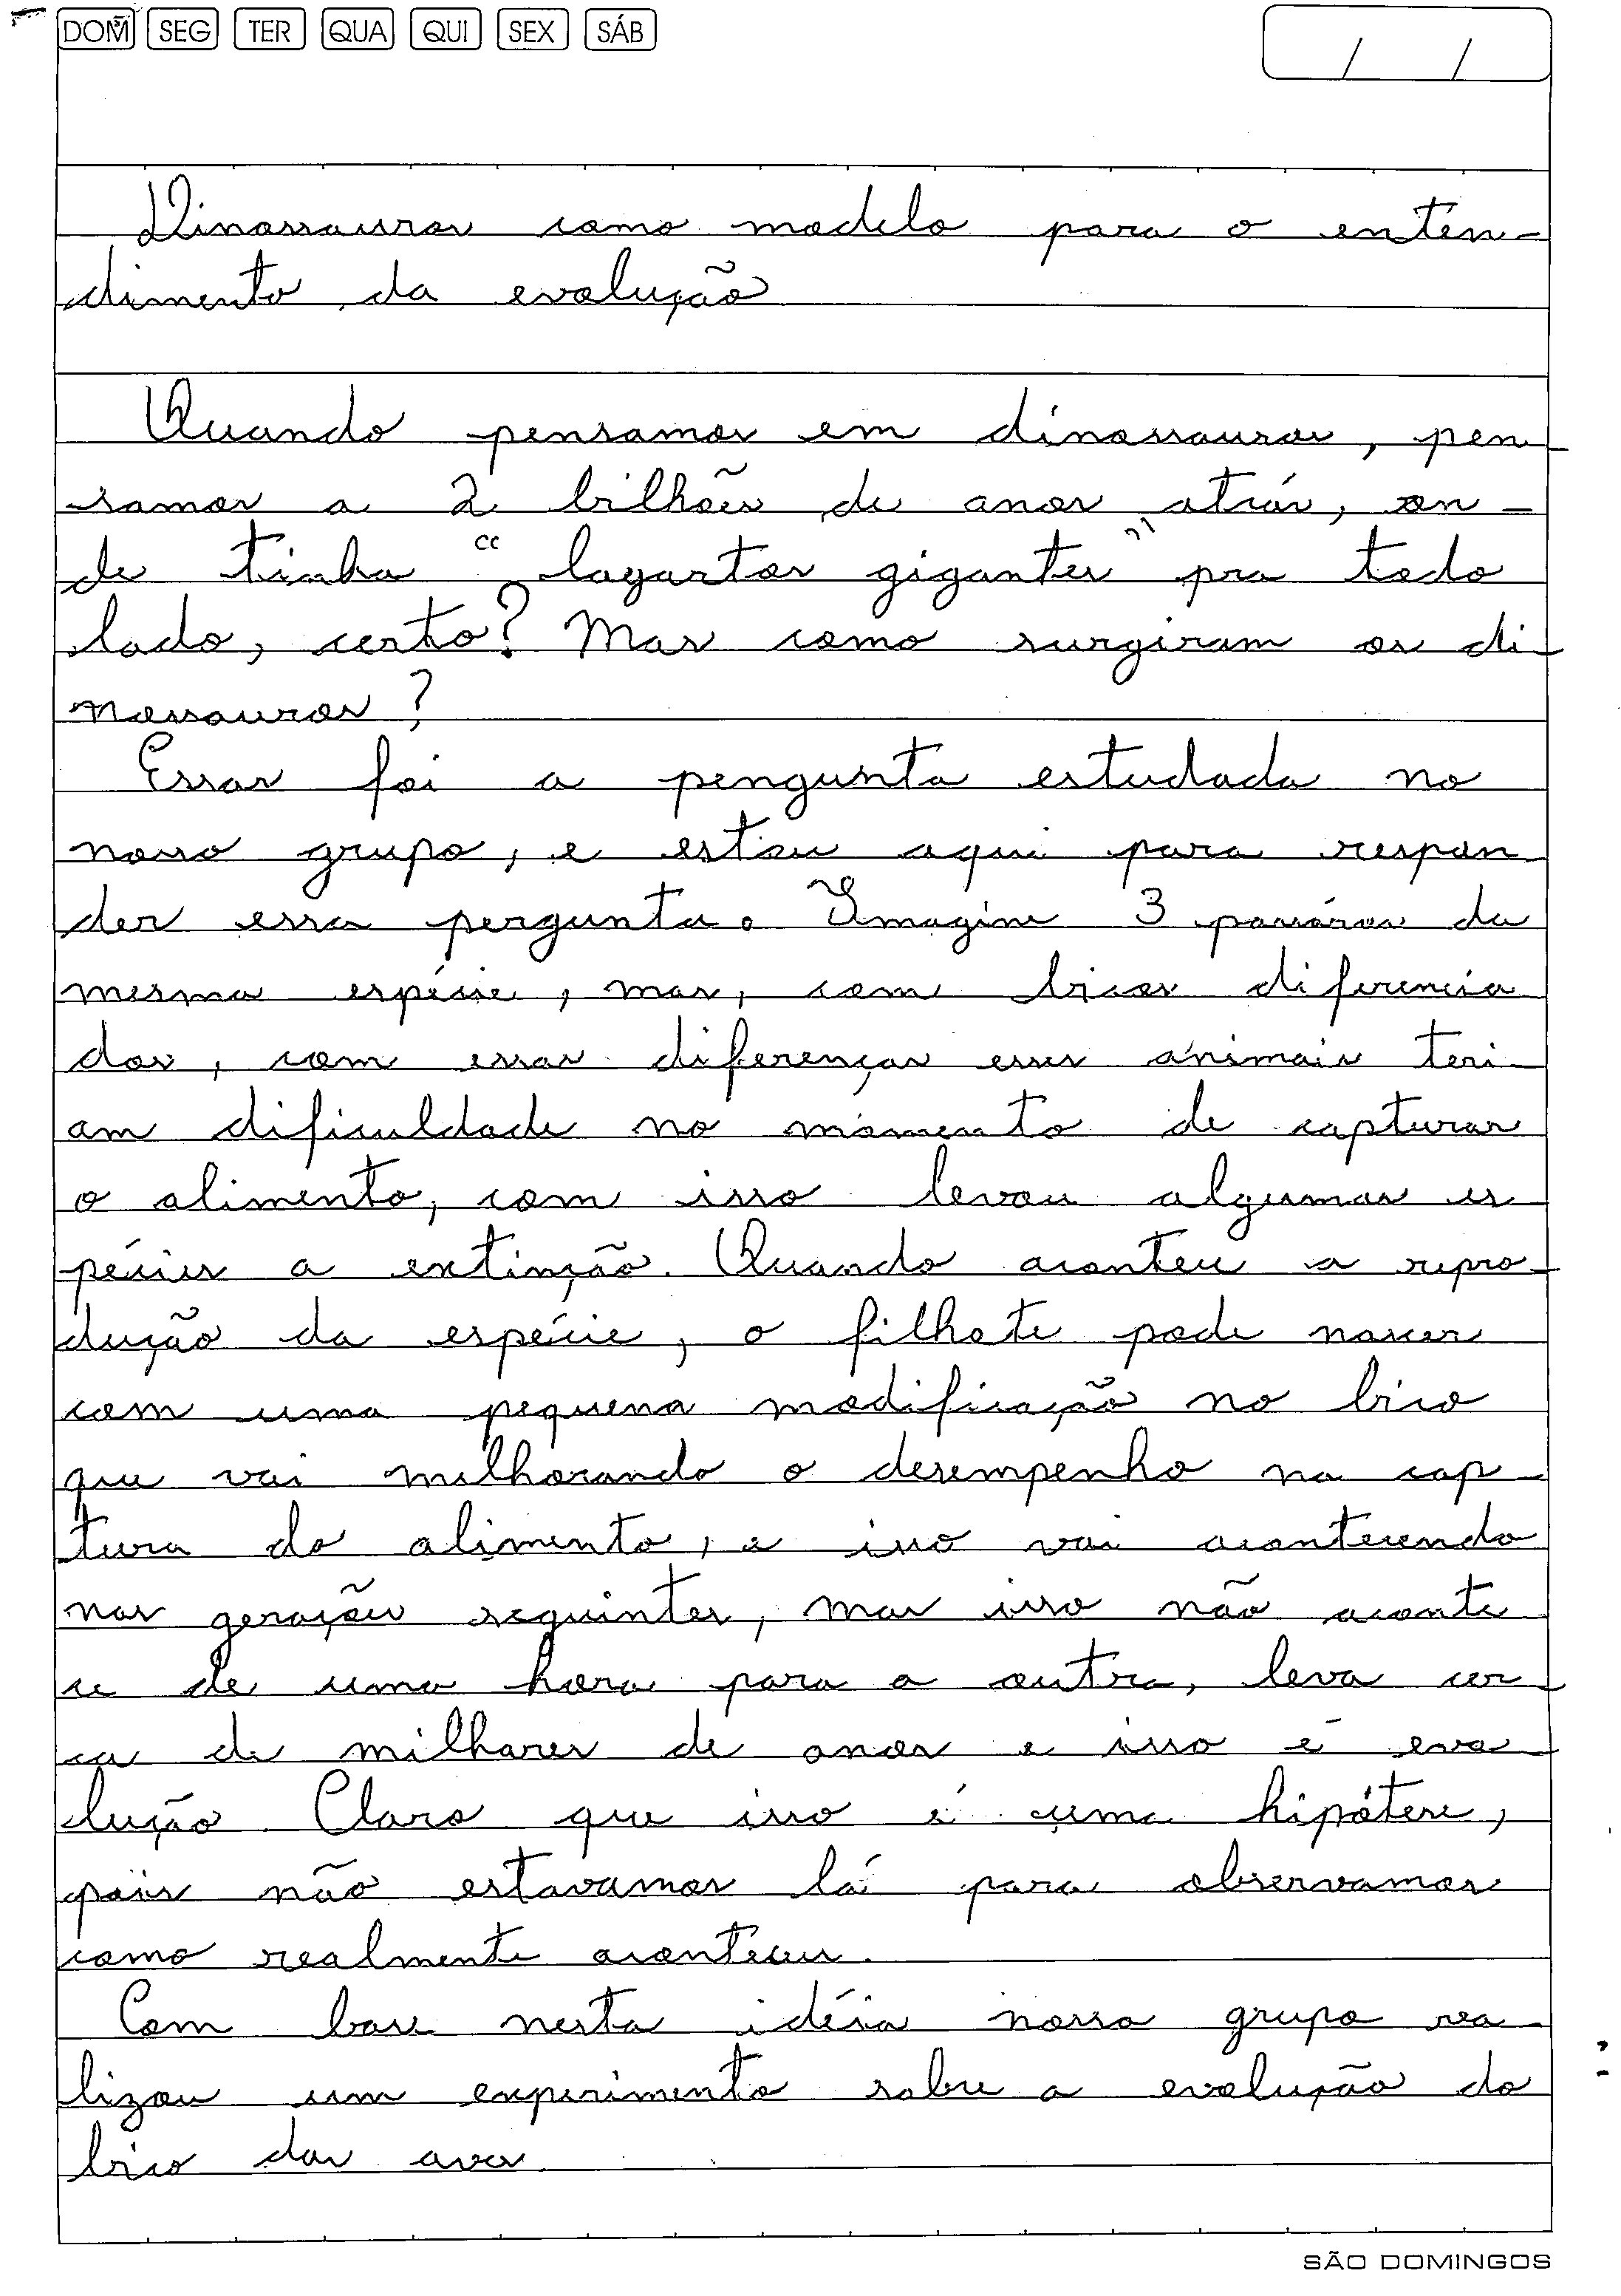 DOM SEG TER QUA QUI SEX SÁB
/ /
Dinossauros como modelo para o enten-
dimento da evolução
Quando pensamos em dinossauros, pen-
samos a 2 bilhões de anos atrás, on-
de tinha "lagartos gigantes" pra todo
lado, certo? Mas como surgiram os di-
nossauros?
Essas foi a pengunta estudada no
nosso grupo, e estou aqui para respon
der essa pergunta. Imagine 3 passáros da
mesma espécie, mas, com bicos diferencia
dos, com essas diferenças esses animais teri-
am dificuldade no momento de capturar
o alimento, com isso levou algumas es
pécies a extinção. Quando acontece a repro-
dução da espécie, o filhote pode nascer
com uma pequena modificação no bico
que vai melhorando o desempenho na cap-
tura do alimento, e isso vai acontecendo
nas gerações seguintes, mas isso não aconte
ce de uma hora para a outra, leva cer-
ca de milhares de anos e isso é evo-
lução Claro que isso é uma hipótese,
pois não estavamos lá para observamos
como realmente aconteceu.
Com base nesta idéia nosso grupo rea-
lizou um experimento sobre a evolução do
bico das aves
SÃO DOMINGOS